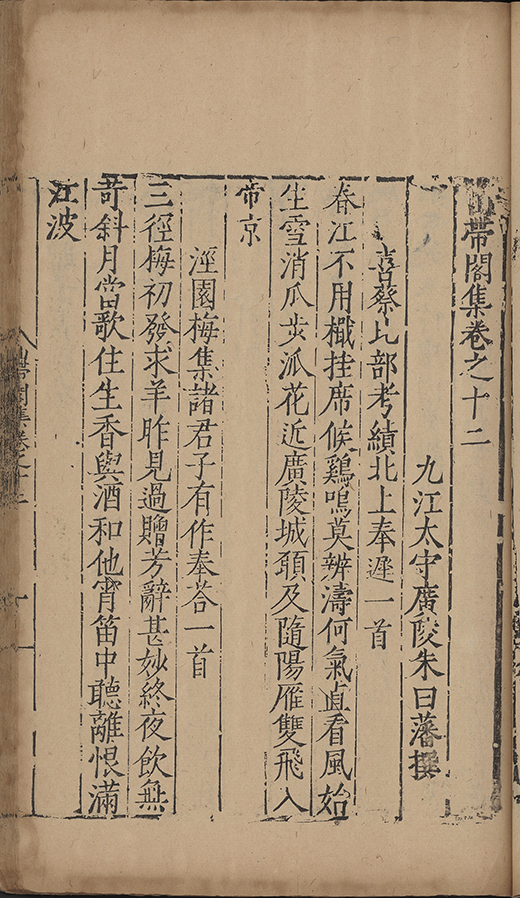 山帶閣集卷之十二
九江太守廣陵朱曰藩撰
喜蔡比部考績北上奉遲一首
春江不用檝挂席候鷄鳴莫辨濤何氣直看風始
生雪消瓜步派花近廣陵城顧及隨陽雁雙飛入
帝京
溼園梅集諸君子有作奉荅一首
三徑梅初發求羊昨見過贈芳辭甚妙終夜飲無
苛斜月當歌住生香與酒和他宵笛中聽離恨滿
江波